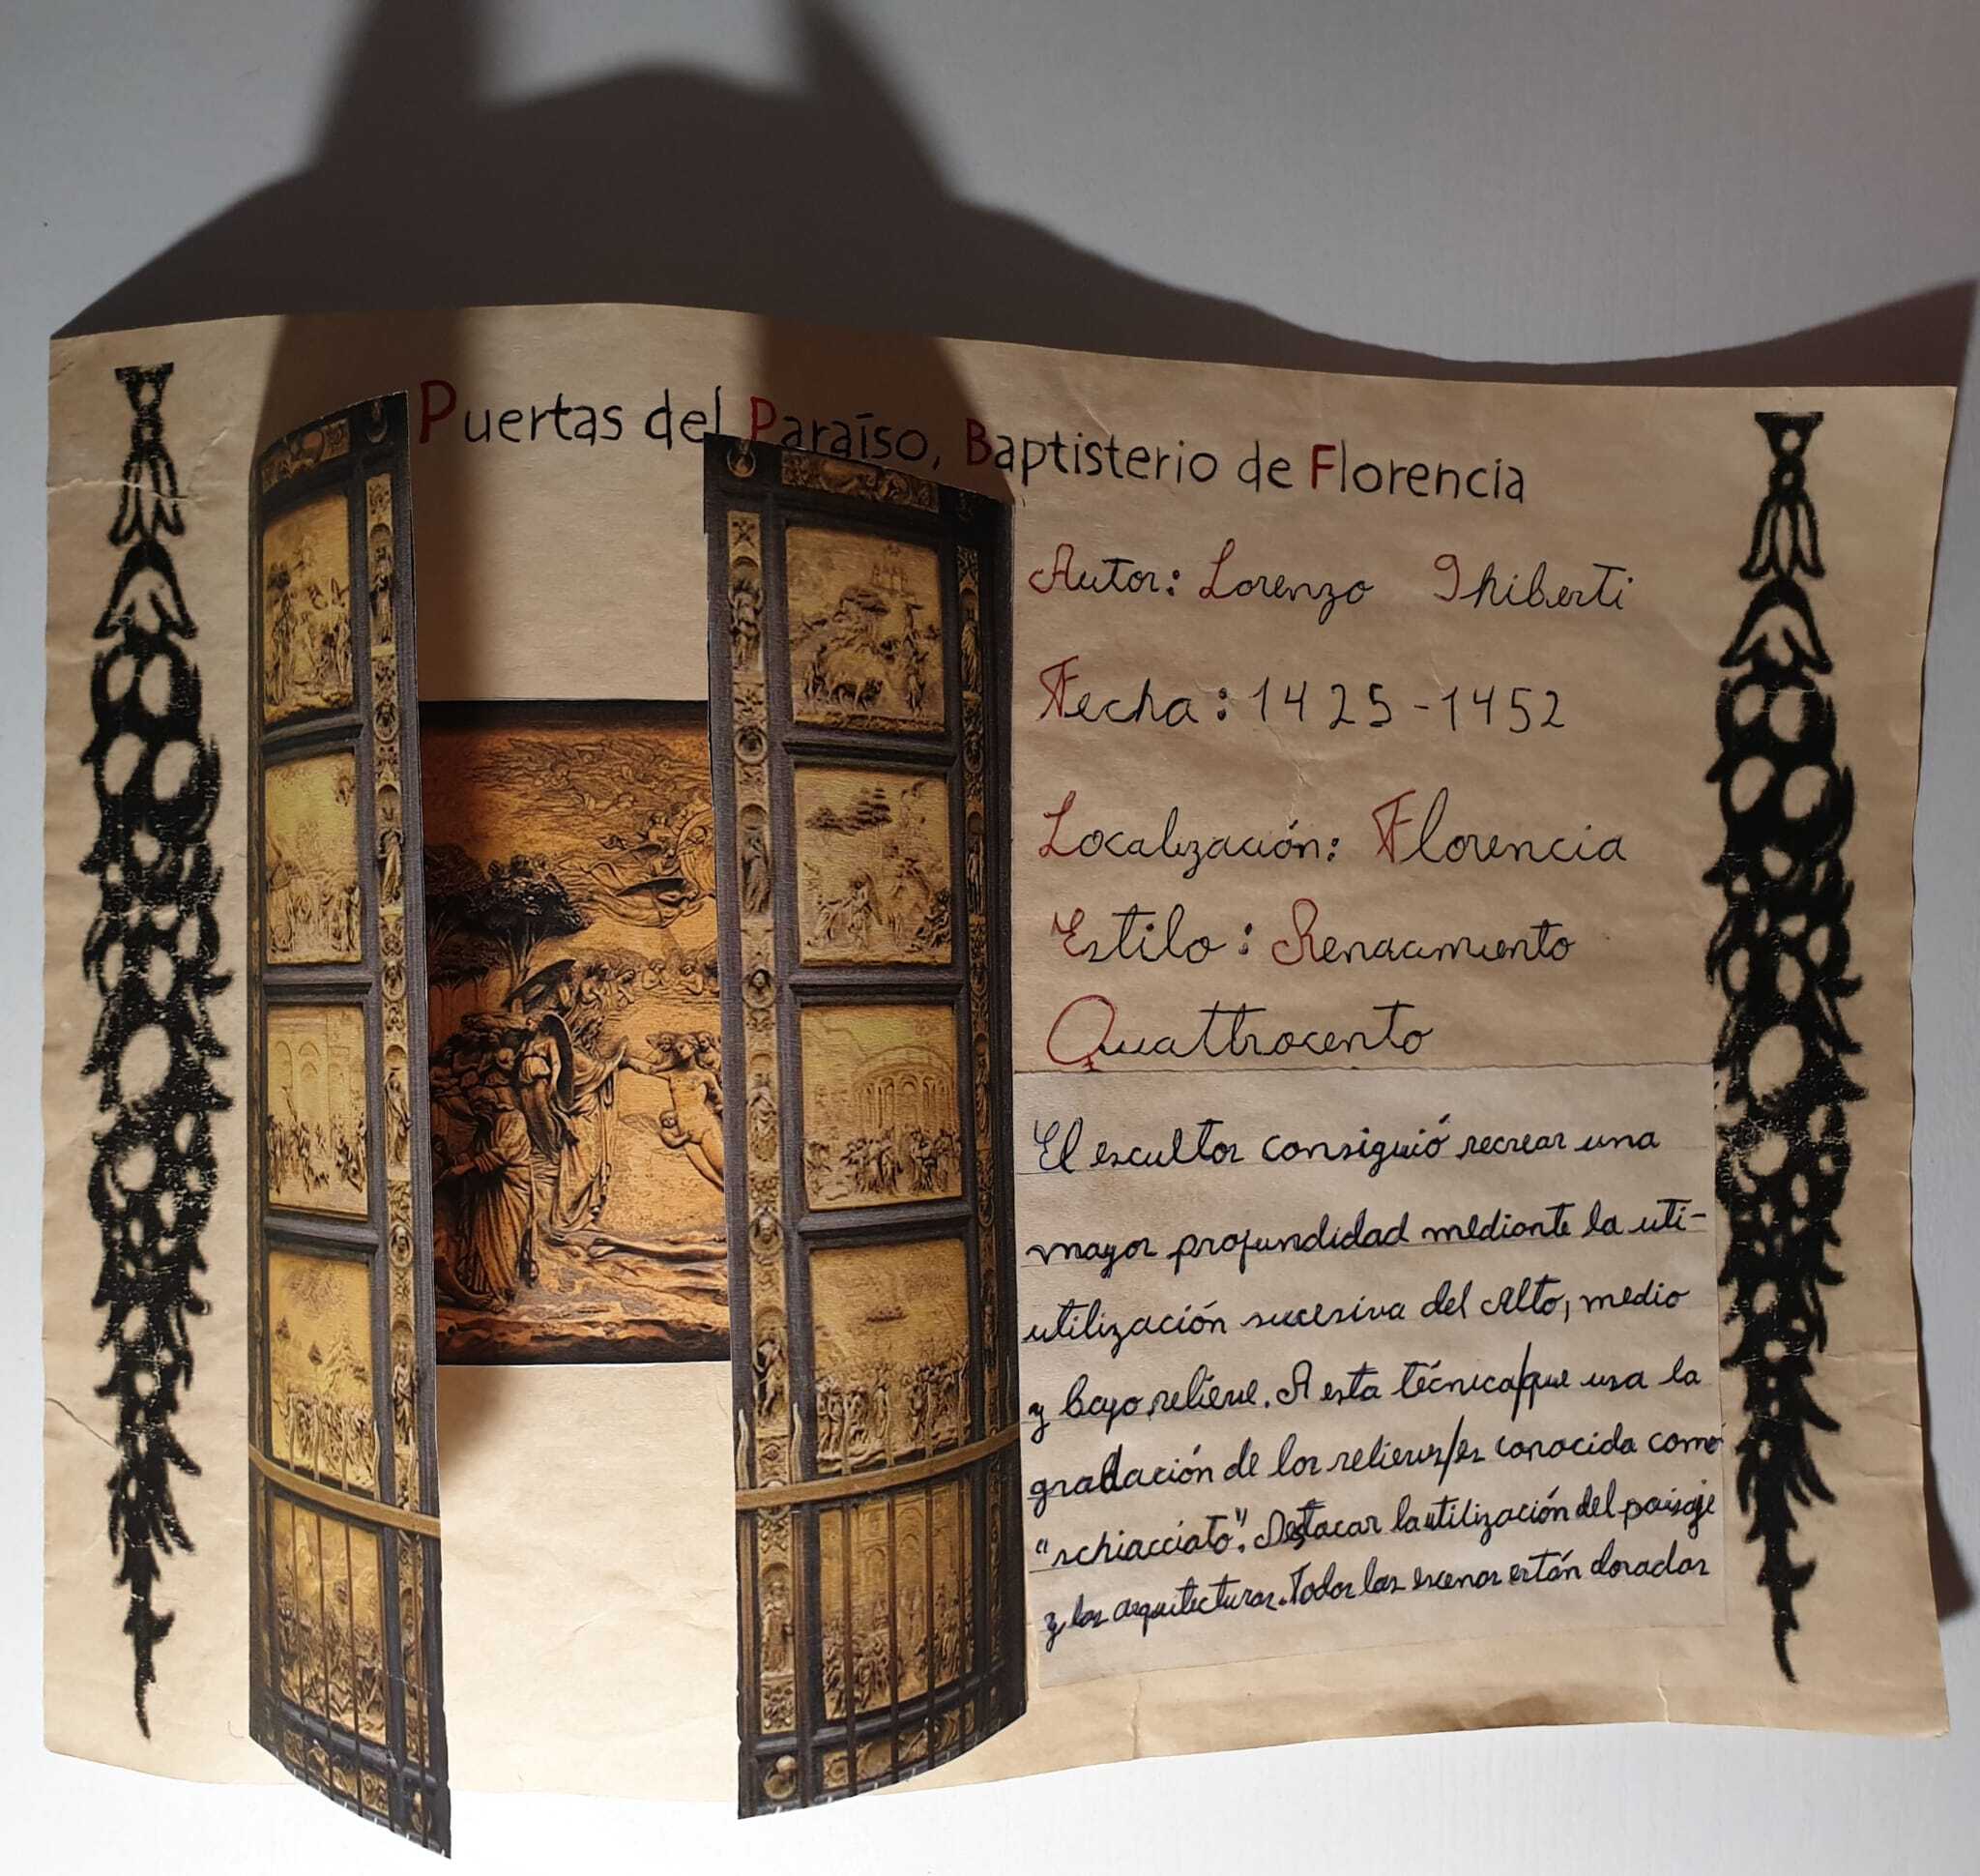 Puertas del Paraíso, Baptisterio de Florencia
Autor: Lorenzo Ghiberti
Fecha: 1425-1452
Localización: Florencia
Estilo: Renacimiento
Quattrocento
El escultor consiguió recrear una
mayor profundidad mediante la uti-
utilización sucesiva del alto, medio
y bajo relieve. A esta técnica/que usa la
gradación de los relieves/es conocida como
"schiacciato". Destacar la utilización del paisaje
y las arquitecturas. Todas las escenas están doradas